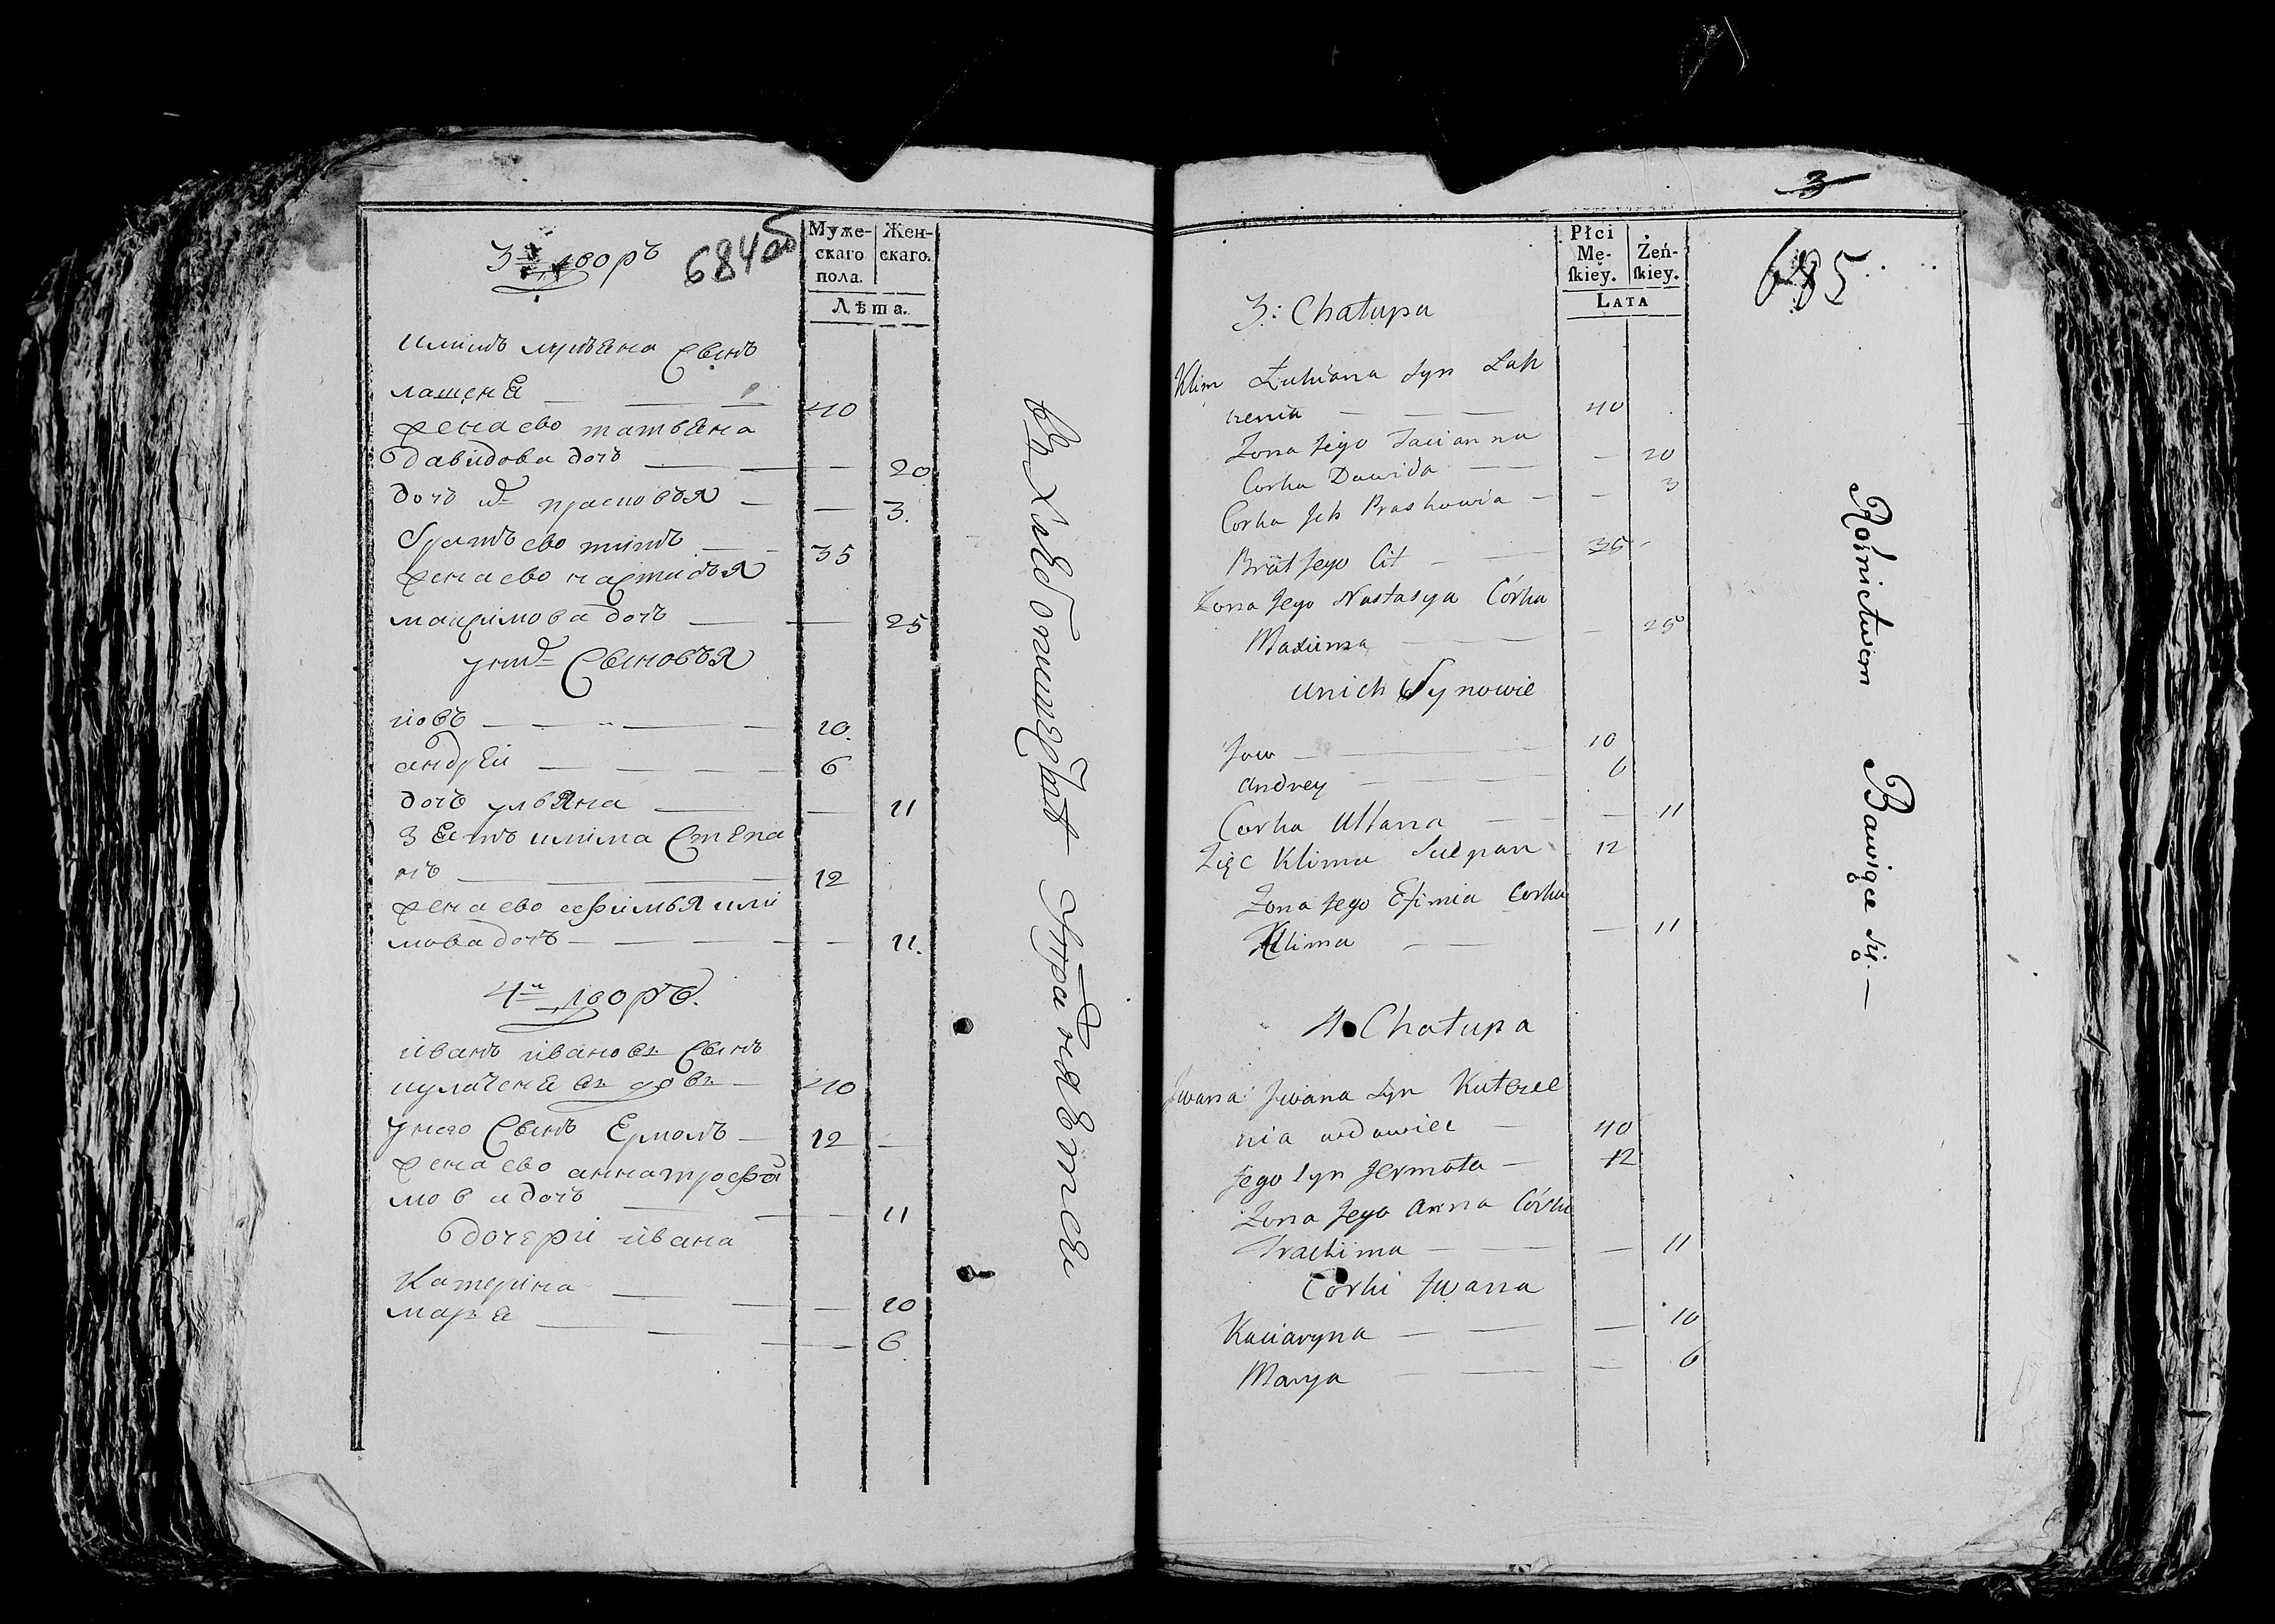 684об
Муже-
скаго
пола.
Жен-
скаго.
Лѣта.
3й дворъ
климъ лукьяна сынъ
лашеня — — — 40
жена ево татьяна
давидова дочь — — — 20
дочь их прасковья — — 3.
братъ ево титъ — — 35
жена ево настасья
максимова дочь — — 25
у них сыновья
иовъ — — — — 10.
андрей — — — — 6
дочь ульяна — — 11
зять клима степа
нъ — — — 12
жена ево афимья кли
мова дочь — — — — 11.
4й дворъ.
иванъ ивановъ сынъ
кулаченя вдовъ — 40
у него сынъ Ермолъ — 12 —
жена ево анна трофи
мова дочь — — — 11
дочери ивана
Катерина — — — 10
марья — — — — 6
въ хлебопашествѣ упражняется
3
685
Płci
Mę-
ſkiey.
Żeń-
ſkiey.
LATA
3: Chałupa
Klim Łukiana syn Łah
zenia — — — 40
Zona jego Tacianna
Corka Dawida — — — 20
Corka Ich Praskowia — — 3
Brat Jego Cit — — 35
Zona Jego Nastasya Córka
Maxima — — — 25
u nich Synowie
Jow — — — 10
Andrey — — — 6
Corka Ullana — — — 11
Zięc Klima Sciepan 12
Zona Jego Efimia Corka
Klima — — — 11
4 Chałupa
Jwana Jwana syn Kulacze
nia wdowiec — 40
Jego syn Jermoła — 12
Zona Jego Anna Córka
Trachima — — — 11
Corki Jwana
Kaciaryna — — — 10
Marya — — — 6
Rolnictwem Bawiące się. —